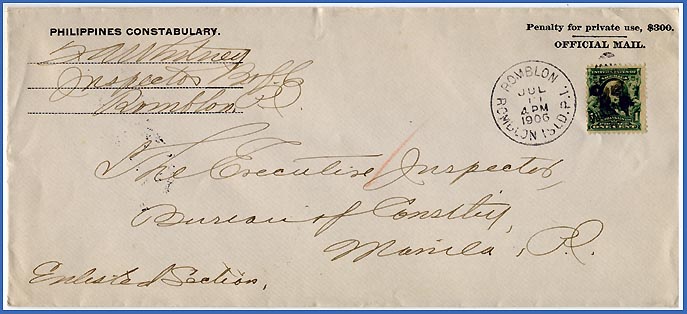 PHILIPPINES CONSTABULARY.
Inspector
Romblon, P.I.
Penalty for private use, $300.
OFFICIAL MAIL.
ROMBLON
JUL
11
4 PM
1906
ROMBLON ISLD. P.I.
The Executive Inspector,
Bureau of Constby,
Manila, P.I.
Enlisted Section,